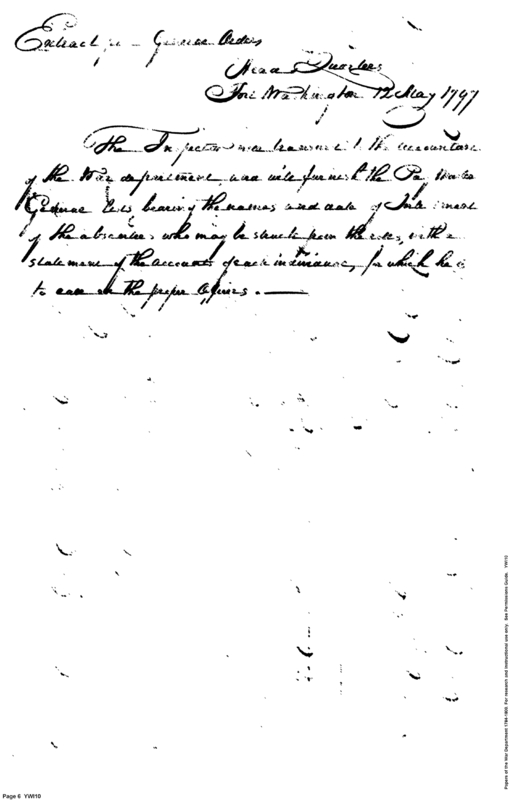 Extract from General Orders
Head Quarters
Fort Washington 12 May 1797
The Inspector will transmit to the accountant
of the War department, and will furnish the Pay Master
General lists, bearing the names and date of
of the absentees who may be struck from the rolls, with a
statement of the accounts of each individual, for which he is
to call on the proper Officers. —
Papers of the War Department 1784-1800. For research and instructional use only. See Permissions Guide. YWI10
Page 6 YWI10